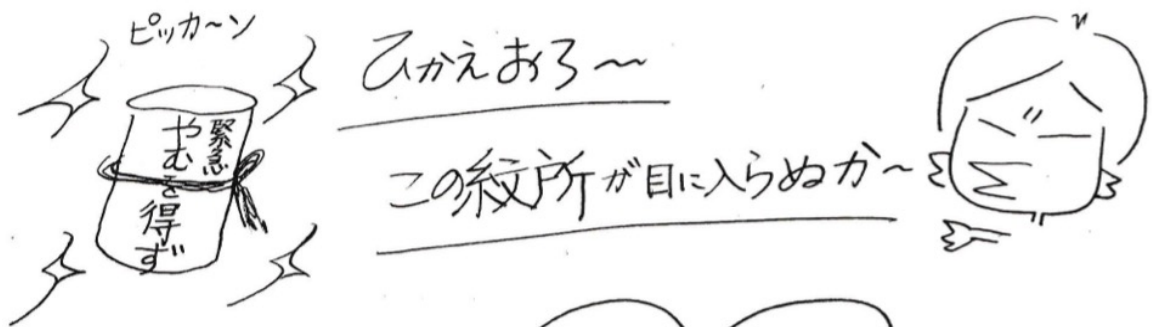 ピッカ〜ン
緊急
やむを得ず
ひかえおろ〜
この紋所が目に入らぬか〜